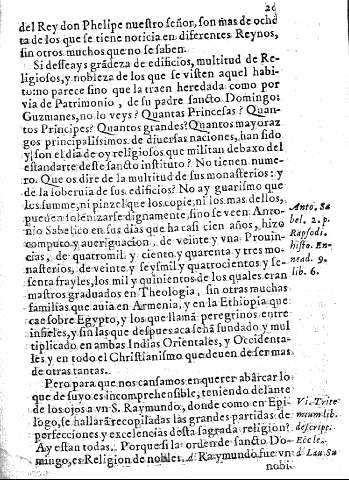 20
del Rey don Phelipe nuestro señor, son mas de oché
ta de los que se tiene noticia en diferentes Reynos,
sin otros muchos que no se saben.
Si desseays grãdeza de edificios, multitud de Re
ligiosos, y nobleza de los que se visten aquel habi
to: no parece sino que la traen heredada como por
via de Patrimonio, de su padre sancto Domingo:
Guzmanes, no lo veys? Quantas Princesas? Quan-
tos Principes? Quantos grandes? Quantos mayoraz
gos principalissimos de diuersas naciones, han sido
y son el dia de oy religiosos que militan debaxo del
estandarte deste sancto instituto? No tienen nume-
ro. Que os dire de la multitud de sus monasterios: y
de la soberuia de sus edificios? No ay guarismo que
los summe, ni pinzel que los copie, ni los mas dellos,
pueden solenizarse dignamente, sino se veen. Anto-
nio Sabelico en sus dias que ha casi cien años, hizo
computo y aueriguacion, de veinte y vna Prouin-
cias, de quatro mil y ciento, y quarenta y tres mo-
nasterios, de veinte y seys mil y quatrocientos y se-
senta frayles, los mil y quinientos de los quales eran
mastros graduados en Theologia, sin otras muchas
familias que auia en Armenia, y en la Ethiopia que
cae sobre Egypto, y los que llamã peregrinos entre
infieles, y sin las que despues aca se hã fundado, y mul
tiplicado en ambas Indias Orientales, y Occidenta-
les y en todo el Christianismo que deuen de ser mas
de otras tantas.
Pero para que nos cansamos en querer abarcar lo
que de suyo es incomprehensible, teniendo delante
de los ojos a vn S. Raymundo, donde como en Epi-
logo, se hallarã recopiladas las grandes partidas de
perfecciones y excelencias desta sagrada religion?
Ay estan todas. Porque si la orden de sancto Do-
mingo, es Religion de nobles. d Raymundo fue vn
nobi-
Anto. Sa
bel. 2. p.
Rapsodi.
histo. En-
nead. 9.
lib. 6.
Vi. Trite
mium lib.
descrip.
Eccle.
d Lau Su